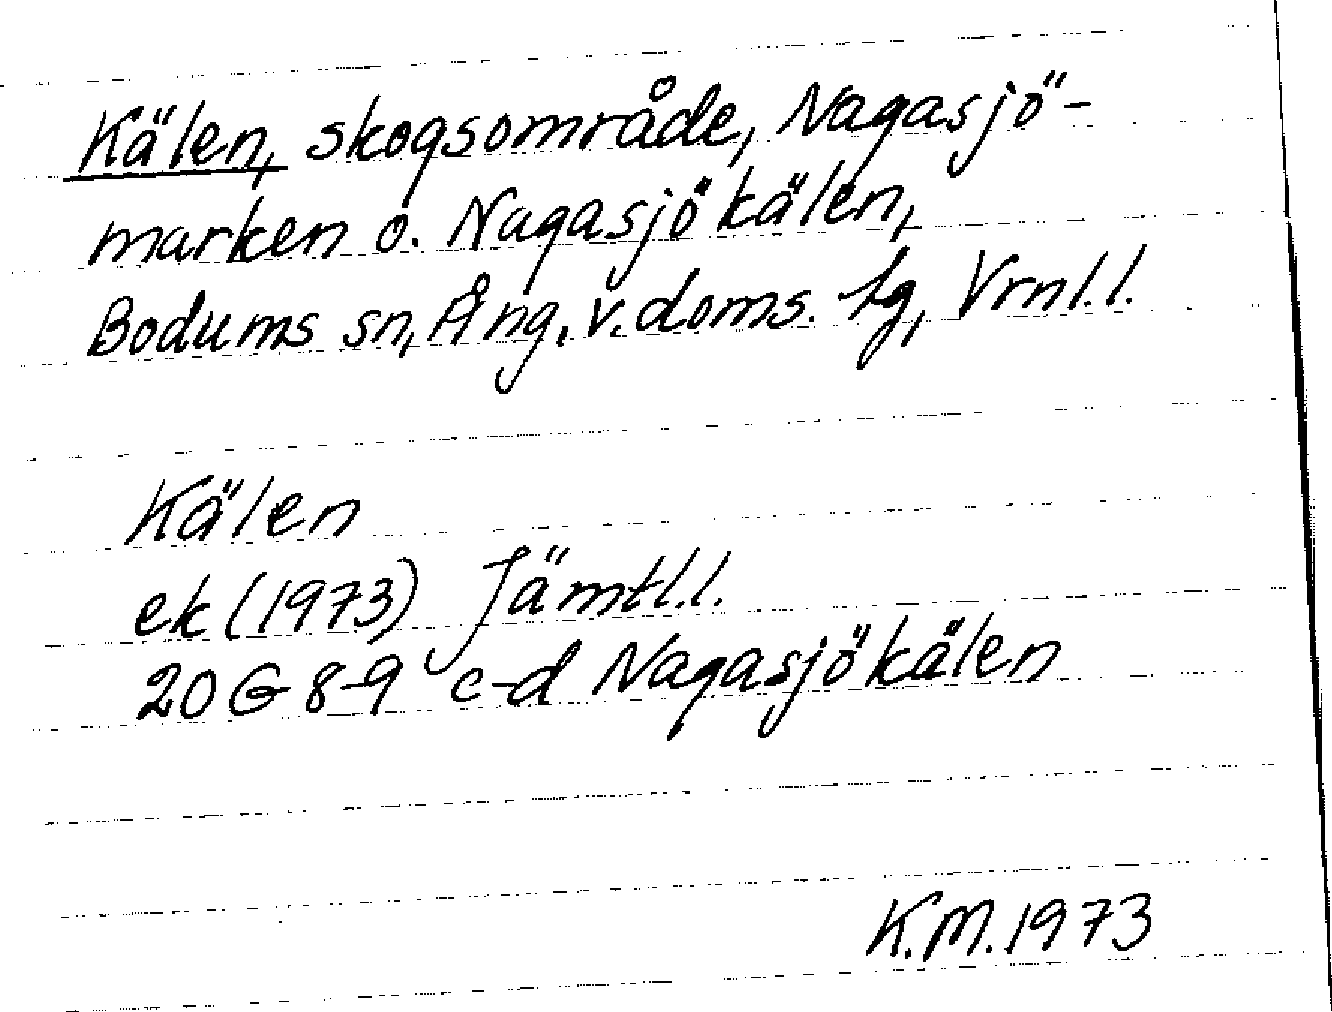 Kälen, skogsområde, Nagasjö-
marken o. Nagasjökälen,
Bodums sn, Ång. v. doms. tg, Vrnl.l.
Kälen
ek (1973) Jämtl.l.
20 G 8-9 c-d Nagasjökälen
K.M. 1973